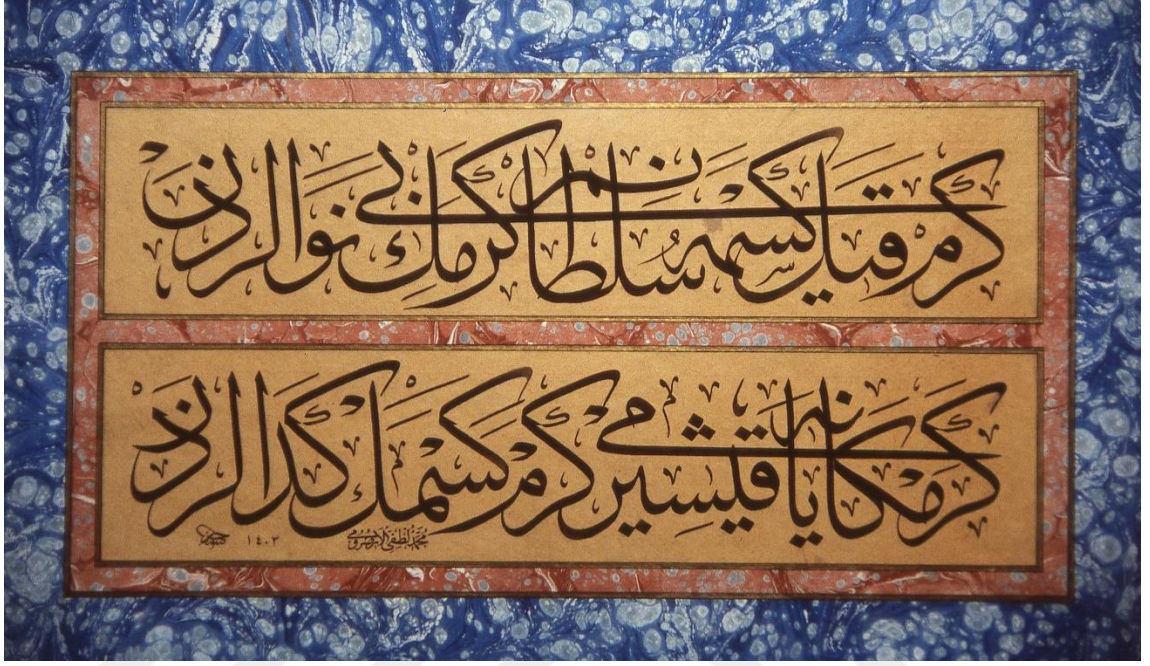 كرم قيل كسمه سلطانم كرمك بى نوالردن
كرمكانه ياقيشيرمى كرم كسمك كدالردن
محمد لطفي الارضرومي ١٤٠٣